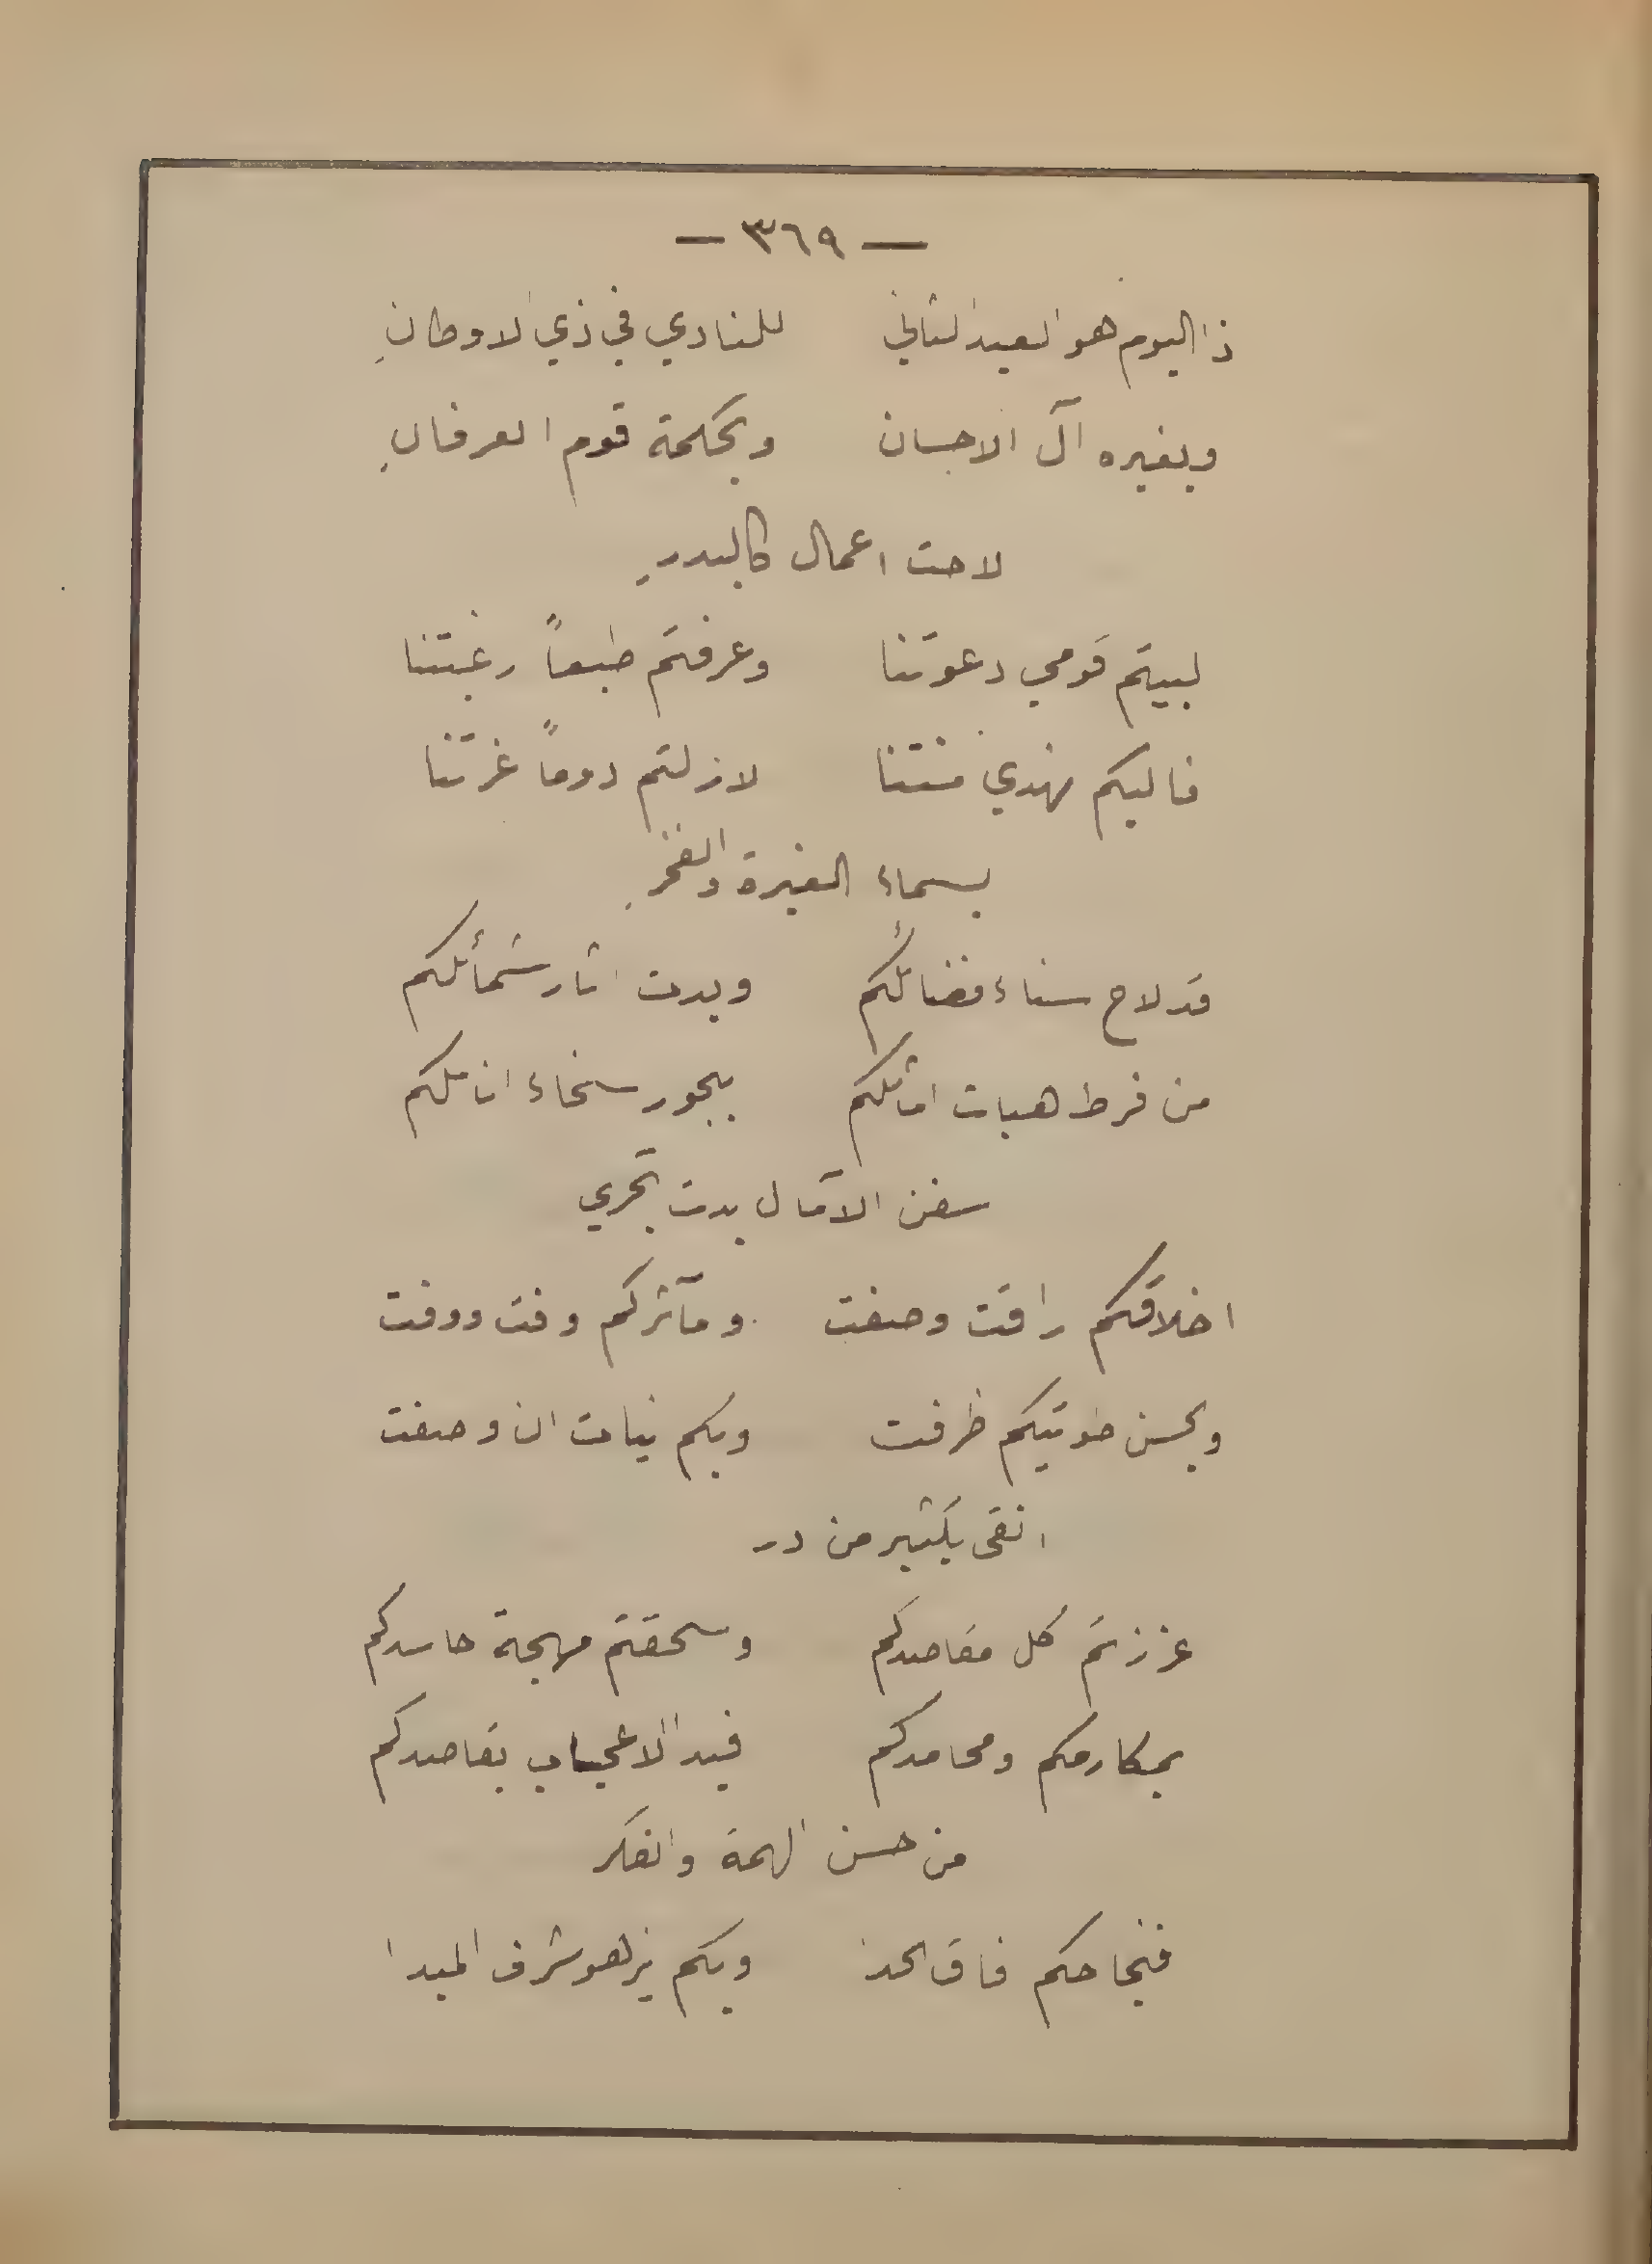 — ٣٦٩ —
ذا اليوم هو العيد الثاني للنادي في ذي الاوطانِ
وبغيره آل الاحسان وبحكمة قوم العرفانِ
لاحت اعمال كالبدرِ
لبيتم قومي دعوتنا وعرفتم طبعاً رغبتنا
فاليكم نهدي منتنا لازلتم دوماً غرتنا
بسماء الغيرة والفخرِ
قد لاح سناء فضائلكم وبدت اثار شمائلكم
من فرط هبات اماثلكم ببحور سخاء اناملكم
سفن الآمال بدت تجري
اخلاقكم راقت وصفت ومآثركم وفت ووفت
وبحسن طويتكم ظرفت وبكم نيات ان وصفت
انقى بكثير من در
عززتم كل مقاصدكم وسحقتم مهجة حاسدكم
بمكارمكم ومحامدكم قيد الاعجاب بقاصدكم
من حسن الهمة والفكر
فنجاحكم فاق الحد وبكم يزهو شرف المبدا